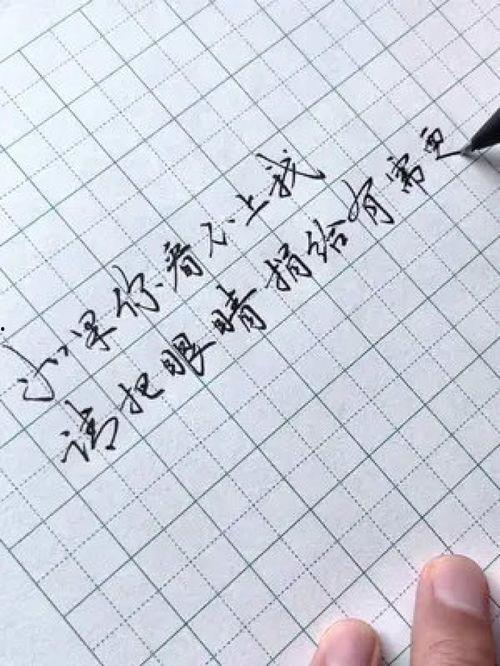 如果你看不上我
请把眼睛捐给有需要